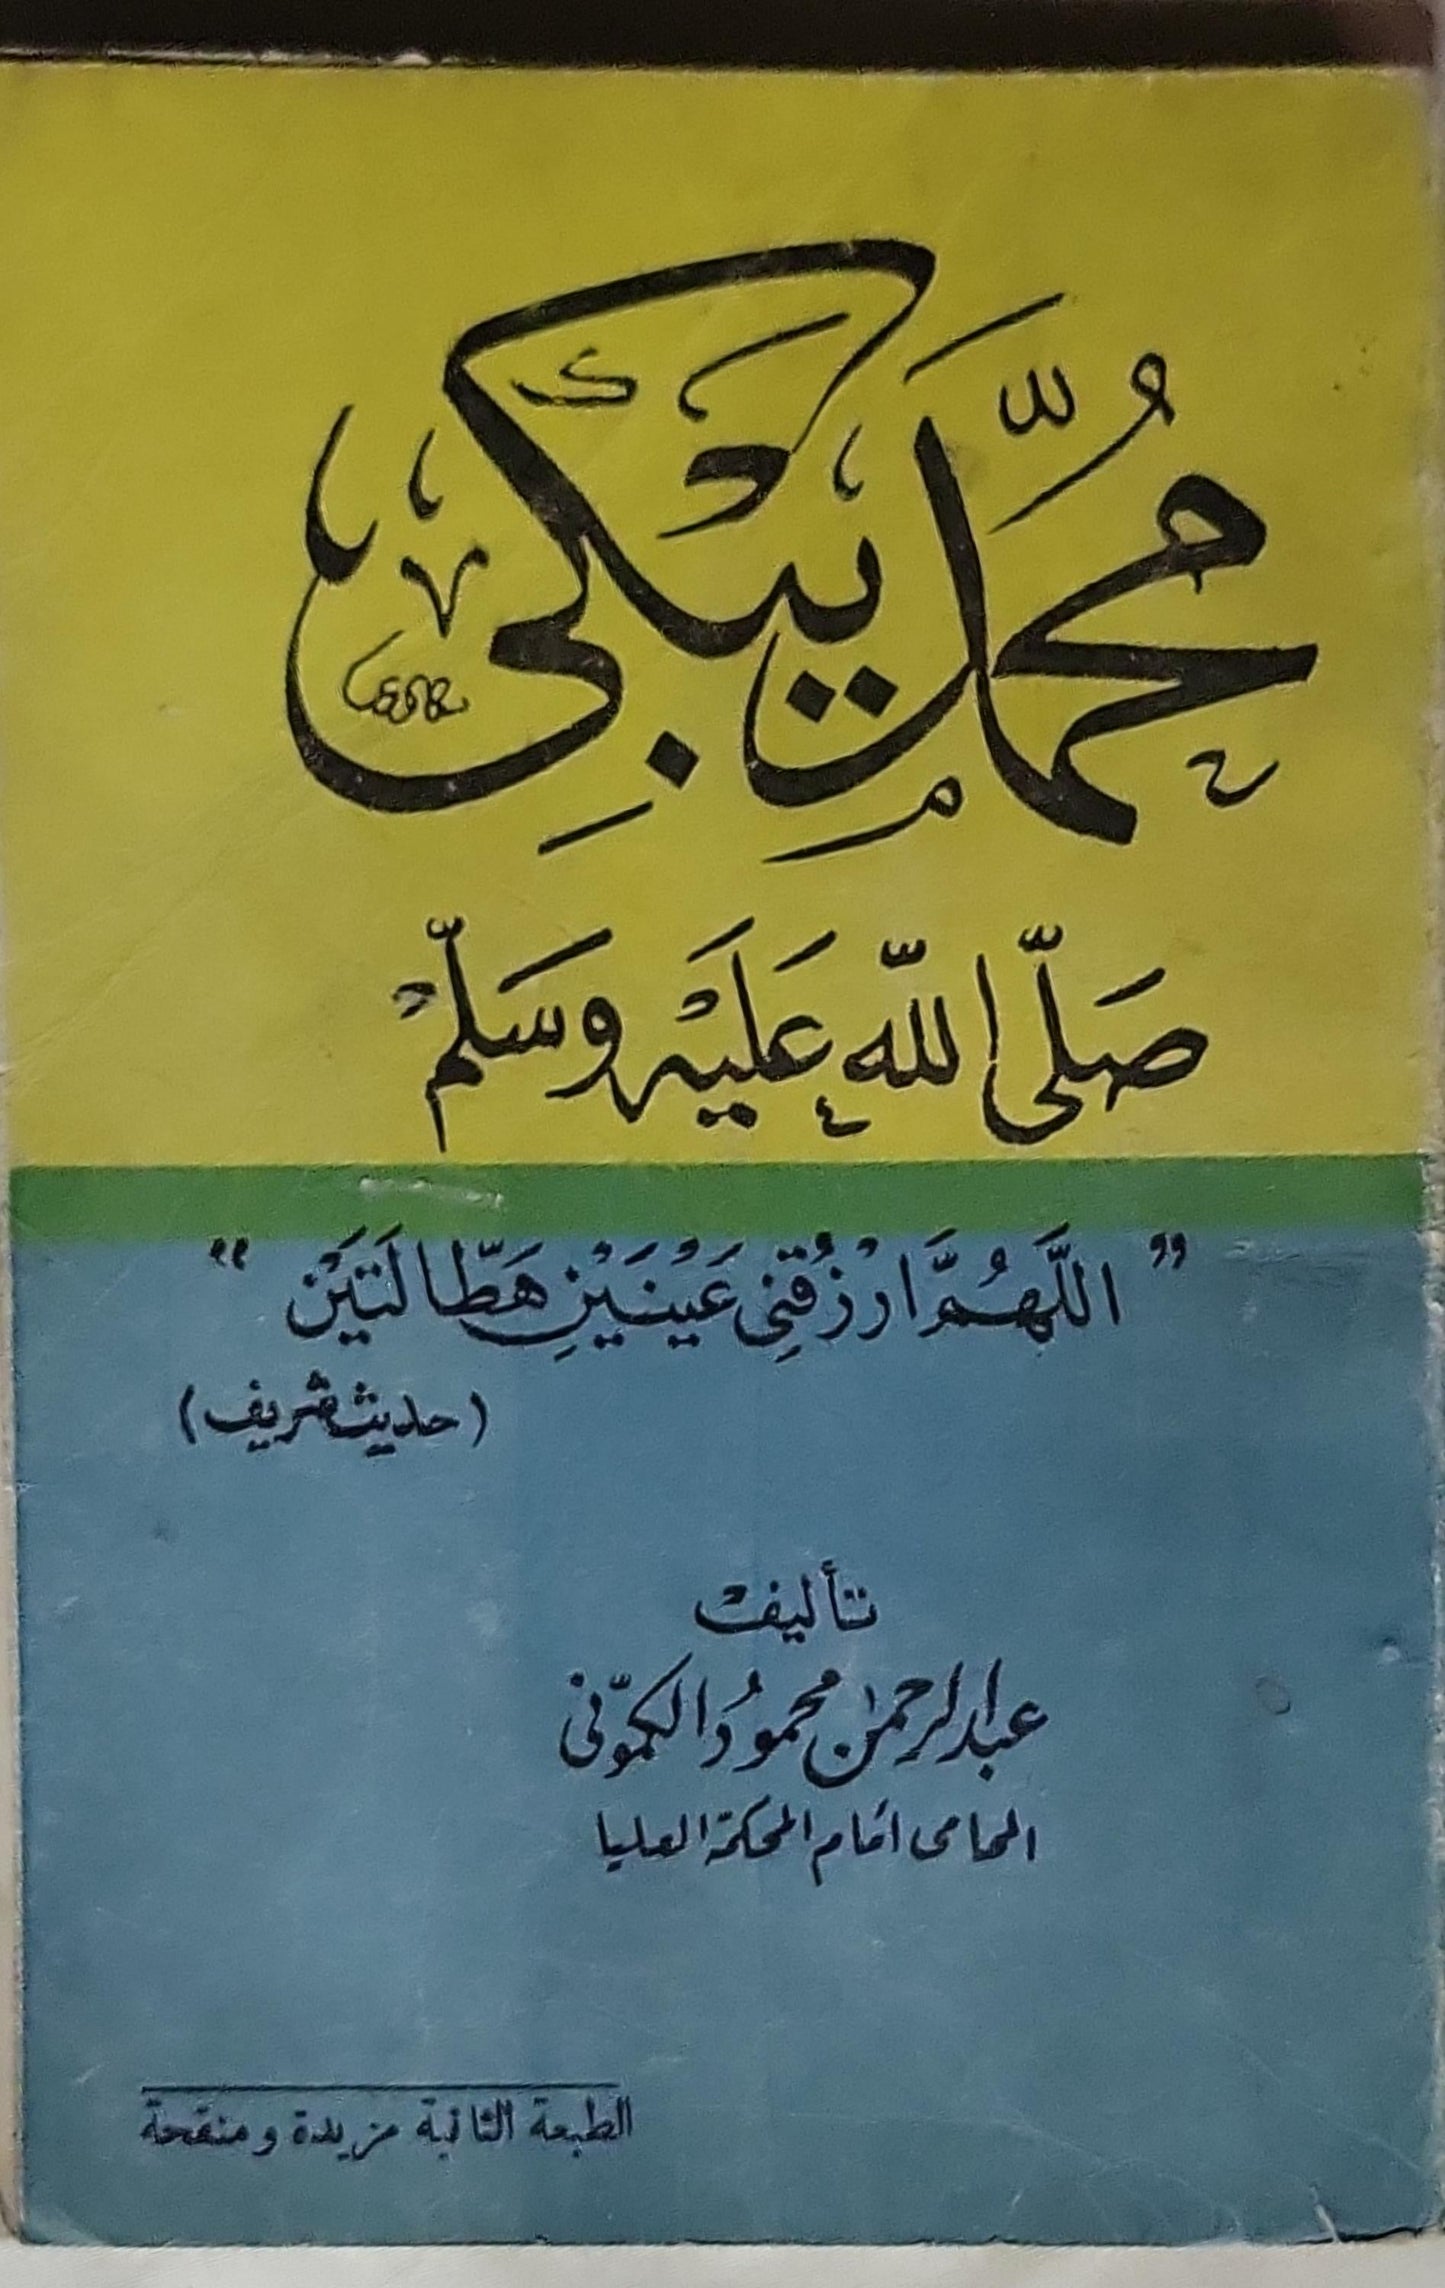 مُحَمَّد يَبْكِي
صَلَّى اللَّه عَلَيْهِ وَسَلَّمْ
" اللَّهُمَّ ارْزُقْنِي عَيْنَيْنِ هَطَّالَتَيْن "
(حديث شريف)
تأليف
عبد الرحمن محمود الكمّونى
المحامى أمام المحكمة العليا
الطبعة الثانية مزيدة ومنقحة